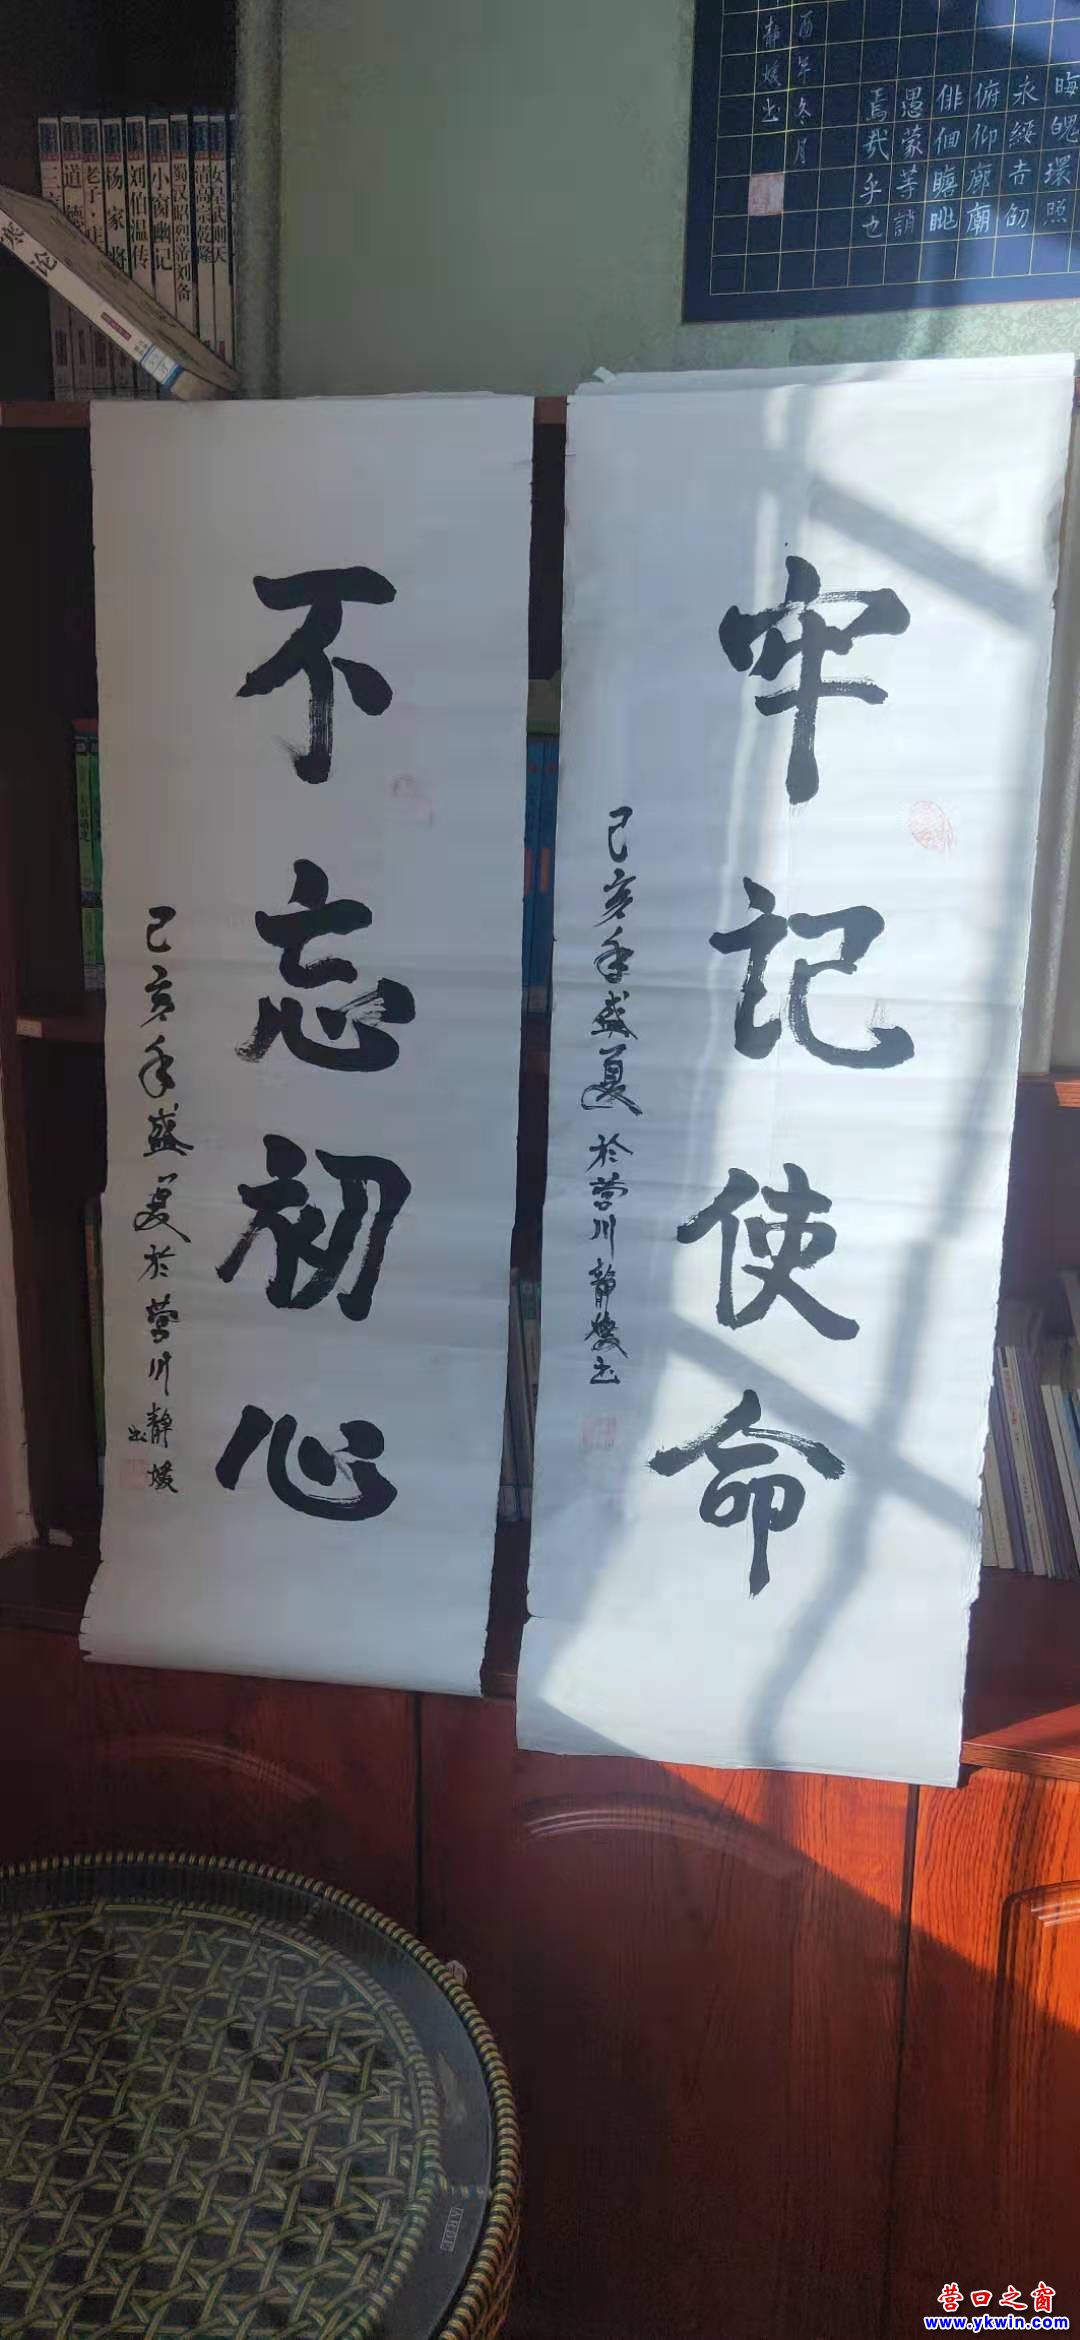 不忘初心
己亥年盛夏於营川静媛书
牢记使命
己亥年盛夏於营川静媛书
晦魄環照
永綏吉劭
俯仰廊廟
徘徊瞻眺
愚蒙等誚
焉哉乎也
酉年冬月
静媛书
道德
老子·庄
杨家将
刘伯温传
小窗幽记
蜀汉昭烈帝刘备
清高宗乾隆
女皇武则天
营口之窗
www.ykwin.com